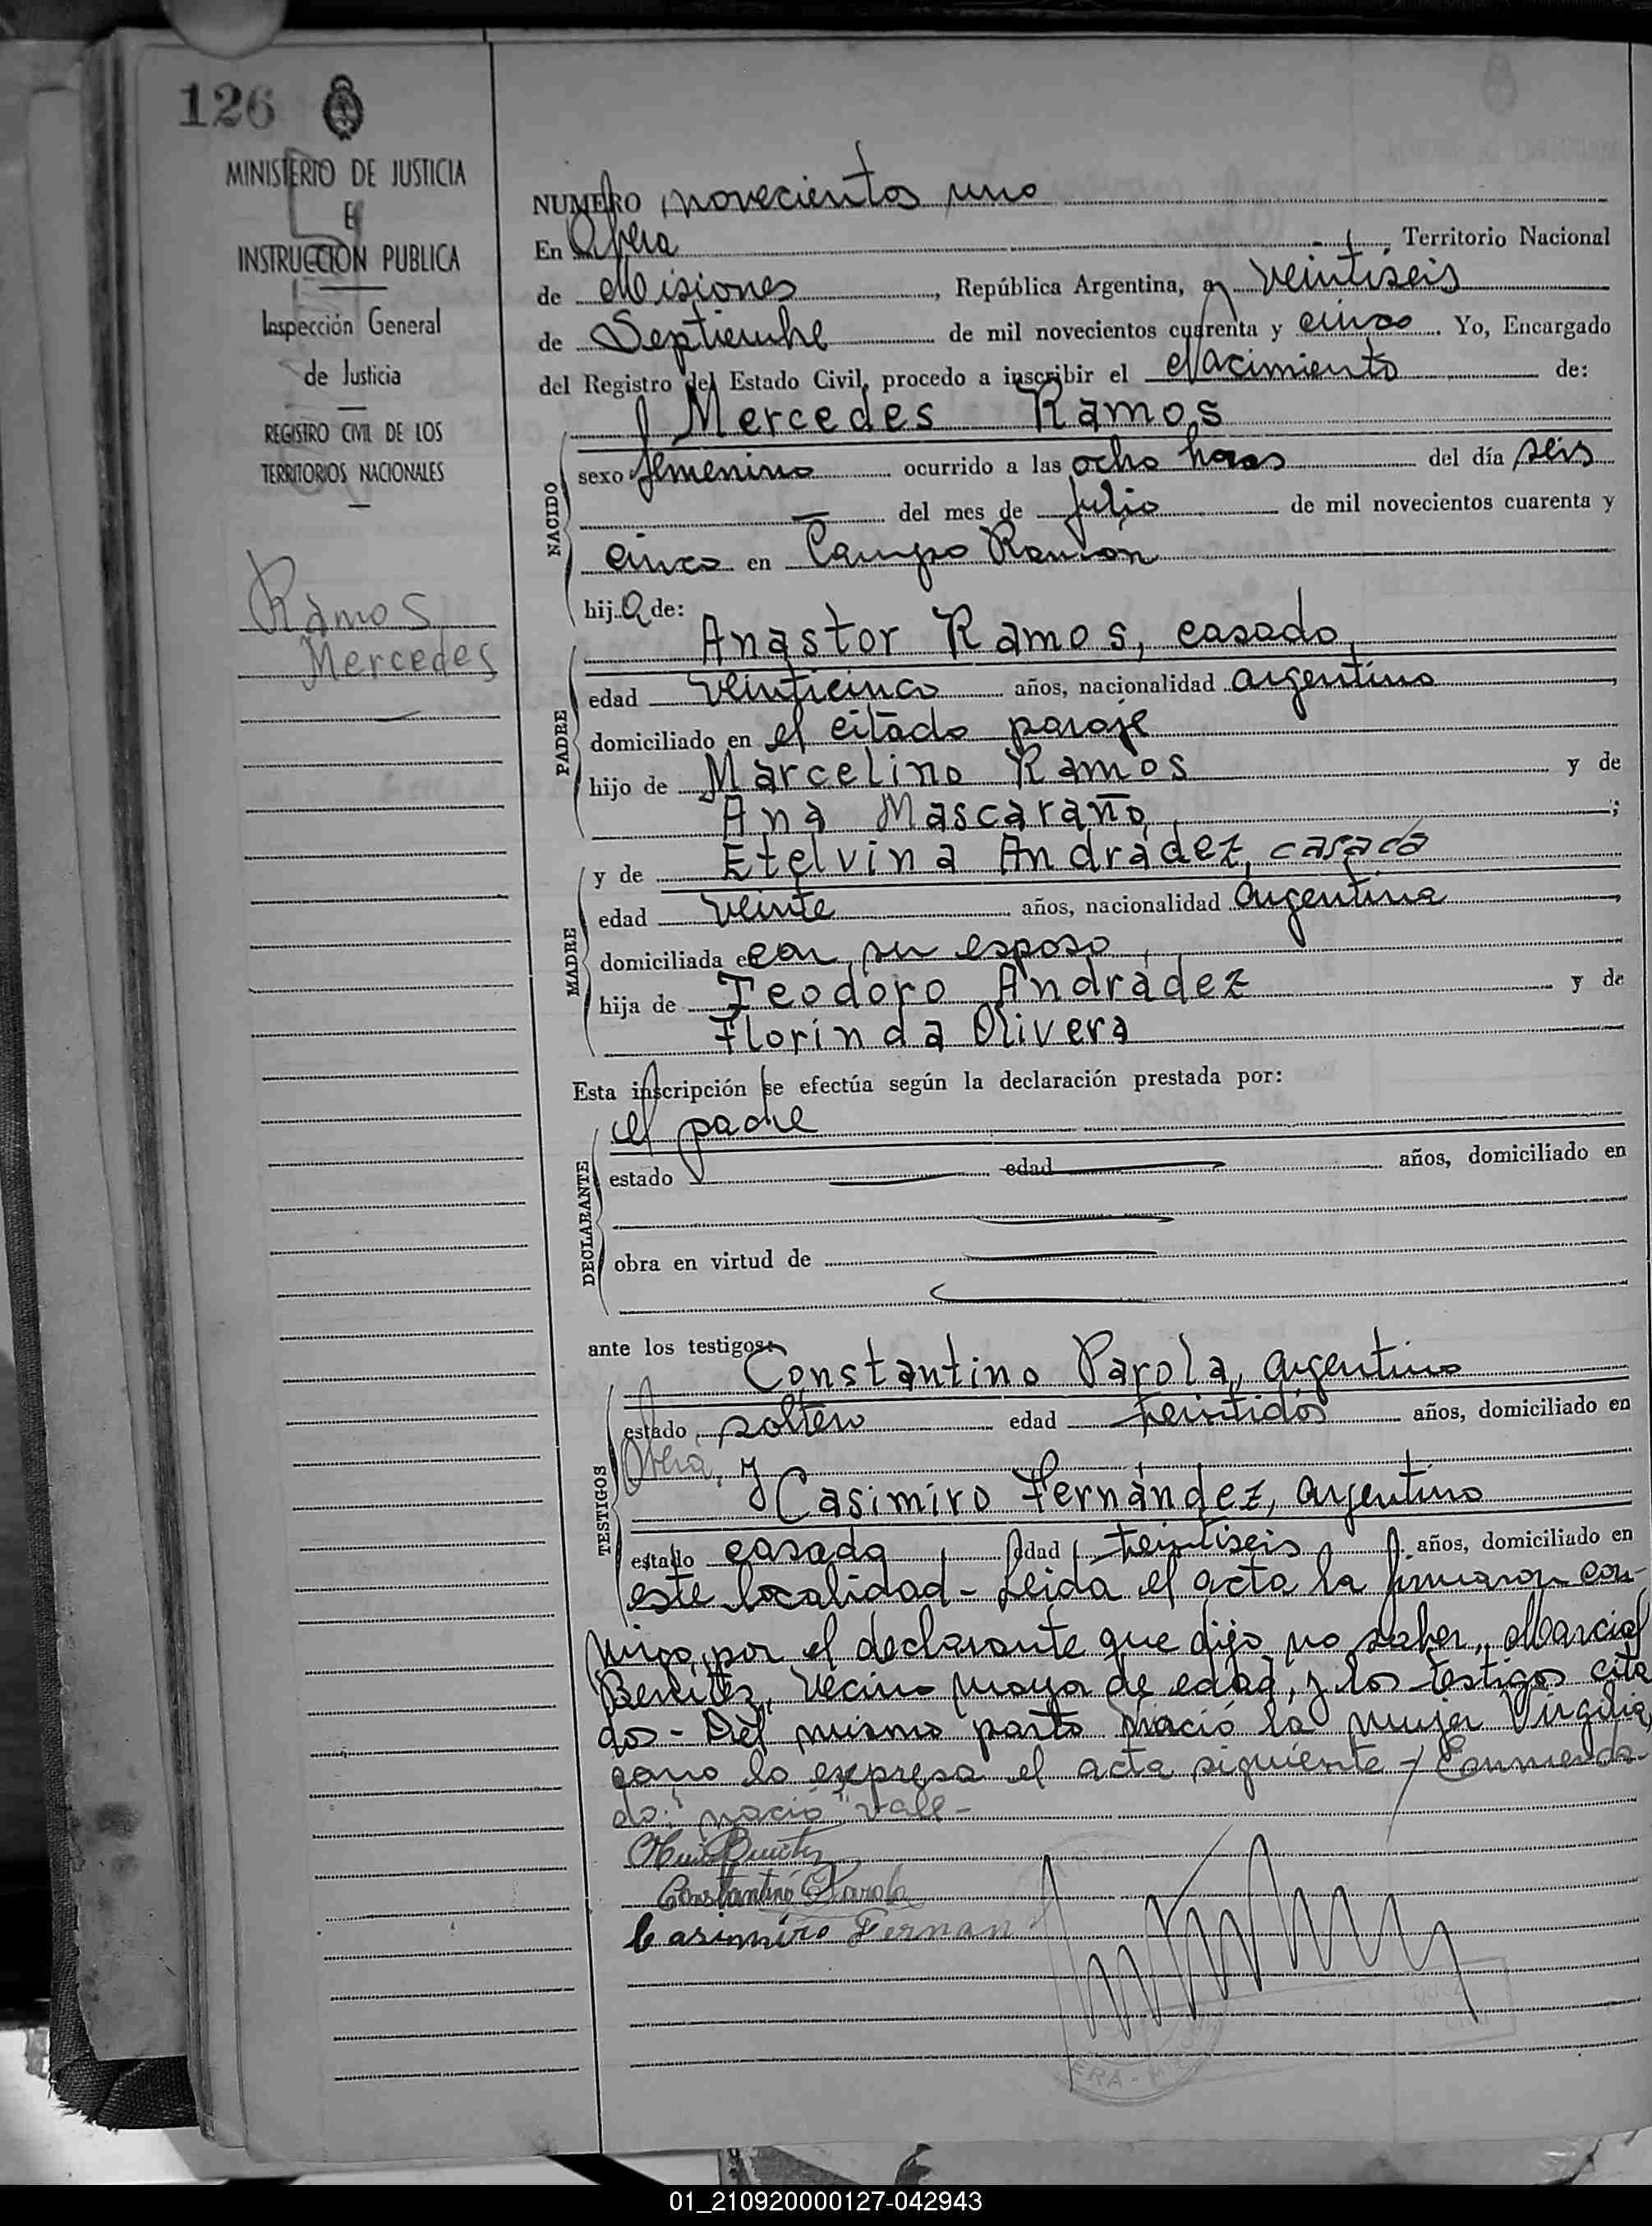 126
MINISTERIO DE JUSTICIA
E
INSTRUCCION PUBLICA
Inspección General
de Justicia
REGISTRO CIVIL DE LOS
TERRITORIOS NACIONALES
Ramos
Mercedes
NUMERO novecientos uno
En Obera, Territorio Nacional
de Misiones, República Argentina, a veintiseis
de Septiembre de mil novecientos cuarenta y cinco. Yo, Encargado
del Registro del Estado Civil, procedo a inscribir el Nacimiento de:
Mercedes Ramos
NACIDO
sexo femenino ocurrido a las ocho horas del día seis
— del mes de julio de mil novecientos cuarenta y
cinco en Campo Ramón
hija de:
Anastor Ramos, casado,
PADRE
edad veinticinco años, nacionalidad argentino,
domiciliado en el citado paraje
hijo de Marcelino Ramos y de
Ana Mascaraño;
y de Etelvina Andradez, casada
MADRE
edad veinte años, nacionalidad argentina,
domiciliada con su esposo,
hija de Teodoro Andradez y de
Florinda Olivera
Esta inscripción se efectúa según la declaración prestada por:
el padre
DECLARANTE
estado — edad — años, domiciliado en
obra en virtud de —
ante los testigos:
Constantino Parola, argentino
TESTIGOS
estado soltero edad treintidós años, domiciliado en
Oberá, y
Casimiro Fernández, argentino
estado casado, edad treintiseis años, domiciliado en
este localidad - Leida el acta la firmaron con-
migo, por el declarante que dijo no saber, Marcial
Benitez, vecino mayor de edad, y los testigos cita
dos - Del mismo parto nació la mujer Virgilia,
como lo expresa el acta siguiente - Enmenda-
do: "nació" vale -
Benitez
Constantino Parola
Casimiro Fernan
ERA - M
01_210920000127-042943